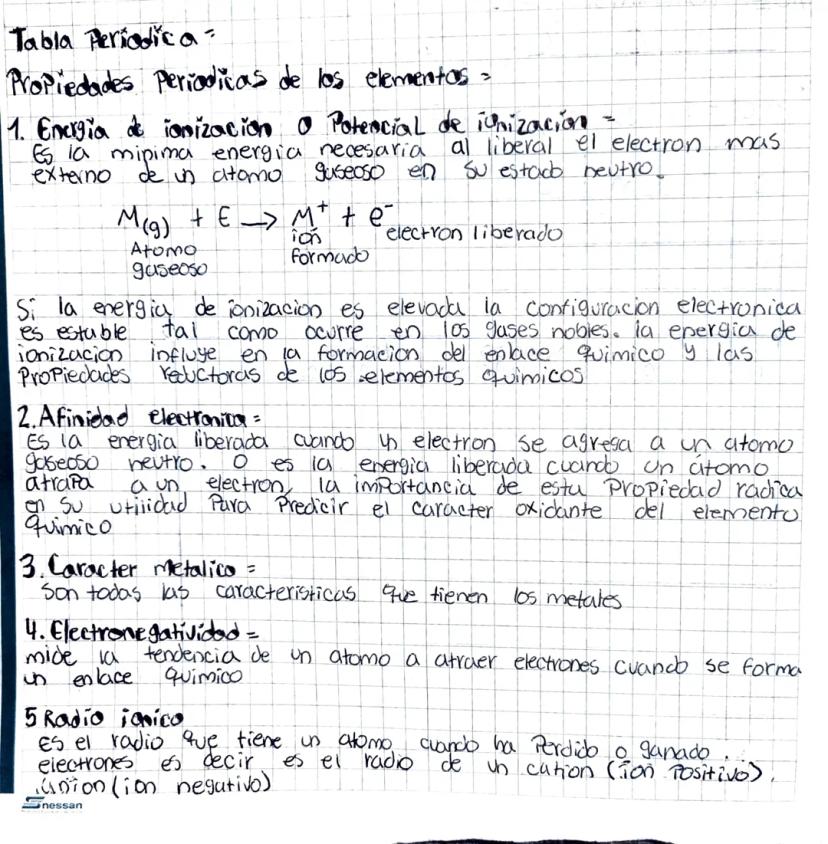 Tabla Periodica =
Propiedades Periodicas de los elementos =
1. Energia de ionizacion o Potencial de ionizacion =
Es la minima energia necesaria al liberal el electron mas
externo de un atomo gaseoso en su estado neutro.
M(g) + E → M⁺ + e⁻
Atomo ion electron liberado
gaseoso formado
Si la energia de ionizacion es elevada la configuracion electronica
es estable tal como ocurre en los gases nobles. la energia de
ionizacion influye en la formacion del enlace quimico y las
Propiedades reductoras de los elementos quimicos
2. Afinidad electronica =
Es la energia liberada cuando un electron se agrega a un atomo
gaseoso neutro. O es la energia liberada cuando un atomo
atrapa a un electron, la importancia de esta Propiedad radica
en su utilidad Para Predicir el caracter oxidante del elemento
quimico
3. Caracter metalico =
Son todas las caracteristicas que tienen los metales
4. Electronegatividad =
mide la tendencia de un atomo a atraer electrones cuando se forma
un enlace quimico
5 Radio ionico
es el radio que tiene un atomo cuando ha Perdido o ganado
electrones es decir es el radio de un cation (ion Positivo).
anion (ion negativo)
nessan